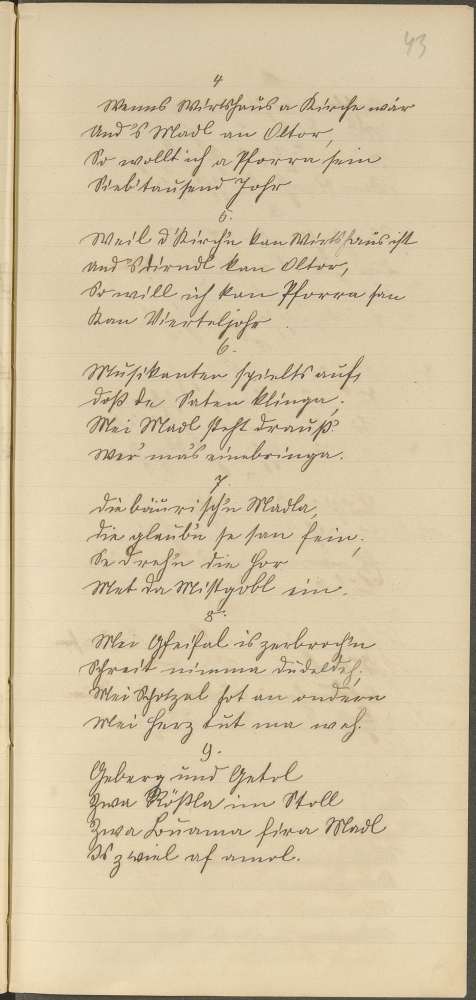 43
4
Wenns Wirtshaus a Kirche wär
Und 's Madl an Oltor,
So wollt ich a Pforra sein
Siebitausend Johr
5.
Weil d' Kirch'n kan Wirtshaus ist
Und 's Dirndl kan Oltor,
So will ich kan Pforra san
Kan Vierteljohr
6.
Musikanten spielts auf,
Daß de Saten klinga;
Mei Madl steht drauß?
Wer' mas einebringa.
7.
Die bäurisch'n Madla,
Die glaub'n se san fein;
Se dreh'n die Hor
Met da Mistgobl ein.
8.
Mei Pfeifal is zerbroch'n
Schreit nimma dudeldeh;
Mei Schotzal hot an ondern
Mei Herz tut ma weh.
9.
Geberg und Getol
Zwa Rößla im Stoll
Zwa Buama fira Madl
Is z'viel af amol.